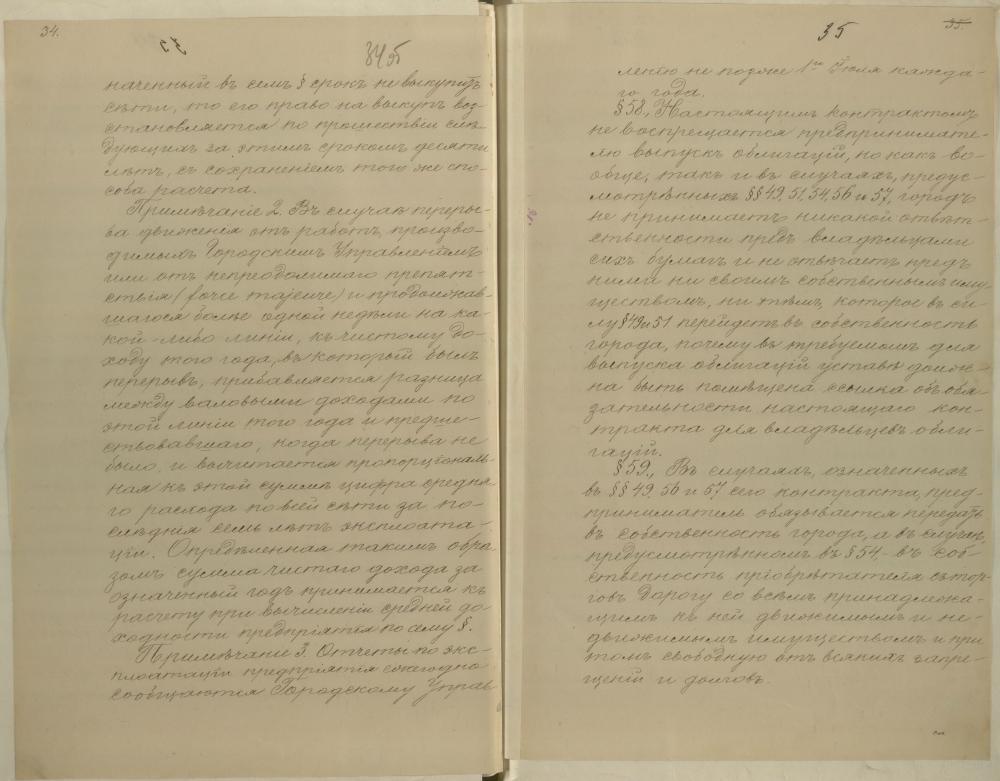 34.
34 35
наченный въ семъ § срокъ не выкупитъ
сѣти, то его право на выкупъ воз-
становляется по прошествіи слѣ-
дующихъ за этимъ срокомъ десяти
лѣтъ, съ сохраненіемъ того же спо-
соба расчета.
Примѣчаніе 2. Въ случаѣ переры-
ва движенія отъ работъ, произво-
димыхъ Городскимъ Управленіемъ
или отъ непреодолимаго препят-
ствія (force majeure) и продолжав-
шагося болѣе одной недѣли на ка-
кой-либо линіи, къ чистому до-
ходу того года, въ который былъ
перерывъ, прибавляется разница
между валовыми доходами по
этой линіи того года и предше-
ствовавшаго, когда перерыва не
было, и вычитается пропорціональ-
ная къ этой суммѣ цифра средня-
го расхода по всей сѣти за по-
слѣднія семь лѣтъ эксплоата-
ціи. Опредѣленная такимъ обра-
зомъ сумма чистаго дохода за
означенный годъ принимается къ
расчету при вычисленіи средней до-
ходности предпріятія по сему §.
Примѣчаніе 3. Отчеты по экс-
плоатаціи предпріятія ежегодно
сообщаются Городскому Управ-
35
35.
ленію не позже 1го Іюля каждо-
го года.
§ 58, Настоящимъ контрактомъ
не воспрещается предпринимате-
лю выпускъ облигацій, но какъ во-
обще, такъ и въ случаяхъ, предус-
мотрѣнныхъ §§ 49, 51, 54, 56 и 57, городъ
не принимаетъ никакой отвѣт-
ственности предъ владѣльцами
сихъ бумагъ и не отвѣчаетъ предъ
ними ни своимъ собственнымъ иму-
ществомъ, ни тѣмъ, которое въ си-
лу § 49 и 51 перейдетъ въ собственность
города, почему въ требуемомъ для
выпуска облигацій уставѣ долж-
на быть помѣщена ссылка объ обя-
зательности настоящаго кон-
тракта для владѣльцевъ обли-
гацій.
§ 59, Въ случаяхъ, означенныхъ
въ §§ 49, 56 и 57 сего контракта, пред-
приниматель обязывается передать
въ собственность города, а въ случаѣ,
предусмотрѣнномъ въ § 54,- въ соб-
ственность пріобрѣтателя съ тор-
говъ дорогу со всѣмъ принадлежа-
щимъ къ ней движимымъ и не-
движимымъ имуществомъ и при
томъ свободную отъ всякихъ запре-
щеній и долговъ.